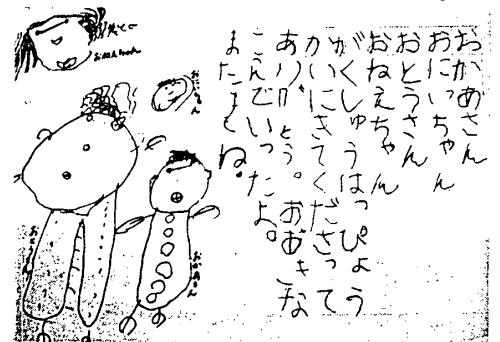 おかあさん
おにいちゃん
おとうさん
おねえちゃん
がくしゅうはっぴょう
かいにきてくださって
ありがとう。おおきな
こえでいったよ。
またきてね。
おねえちゃん
おにいちゃん
おとうさん
おかあさん